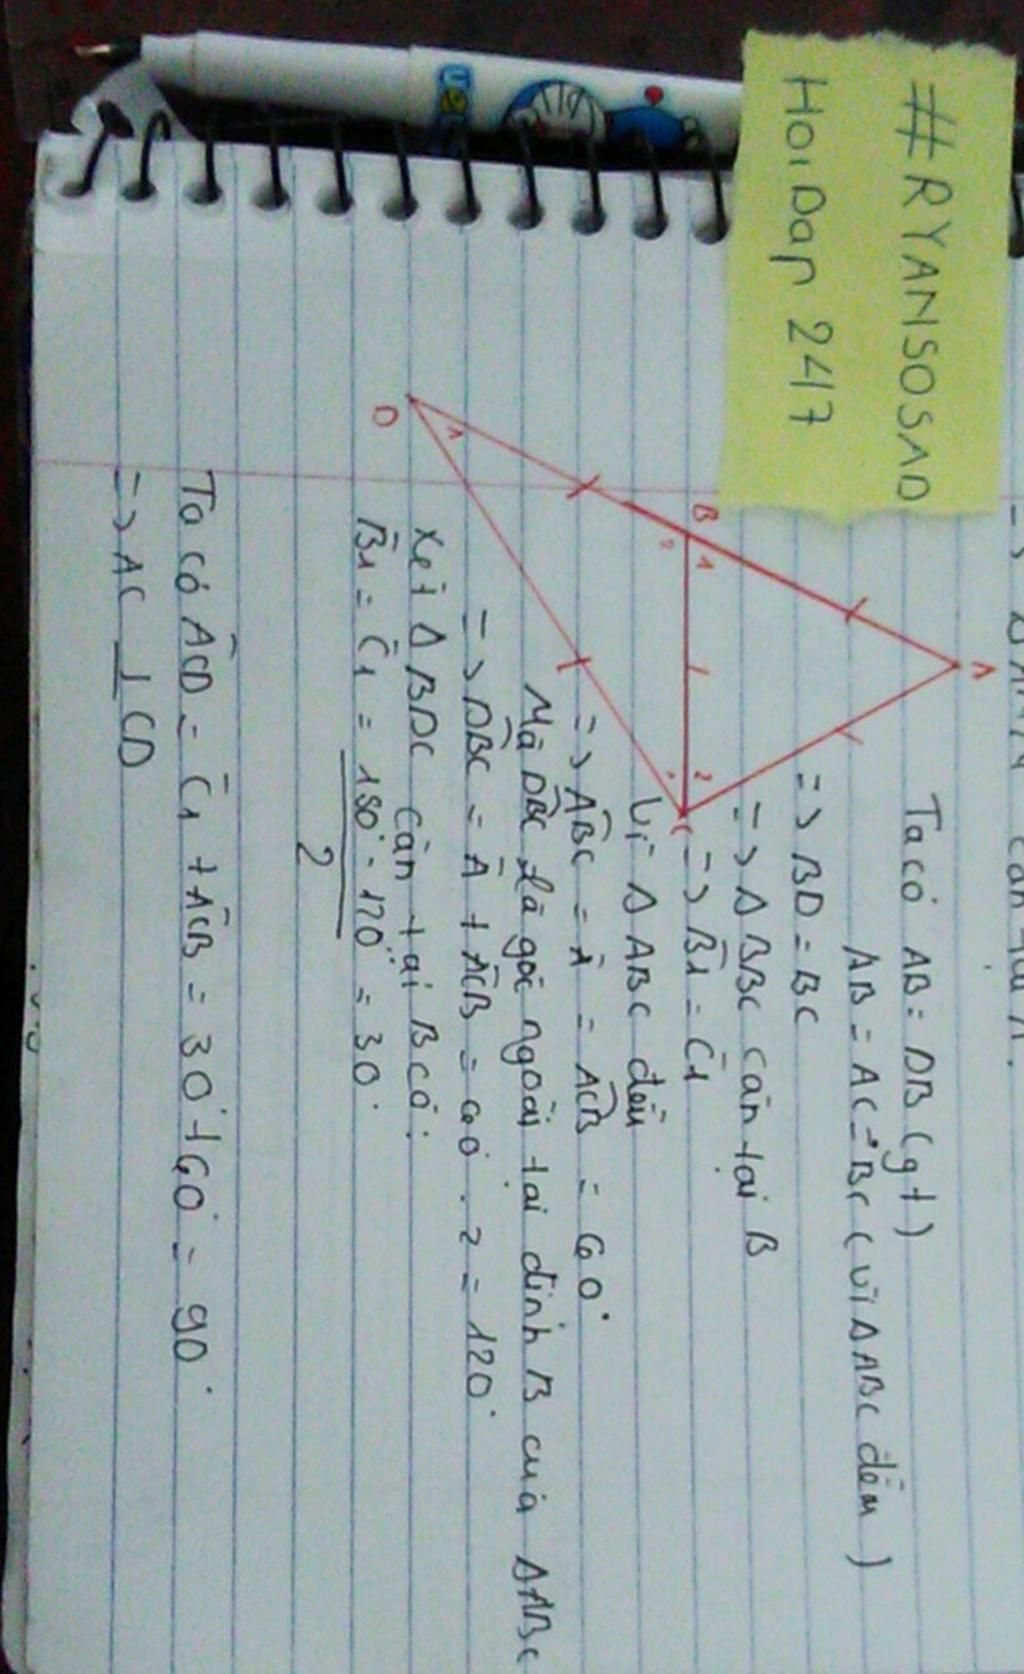 #RYANSOSAD
HoiDap 247
Ta có AB = DB (gt)
AB = AC = BC (vì Δ ABC đều)
=> BD = BC
=> Δ BBC cân tại B
=> B̂1 = Ĉ1
Vì Δ ABC đều
=> ABC = Â = ACB = 60°
Mà DBC là góc ngoài tại đỉnh B của Δ ABC
=> DBC = Â + ACB = 60° . 2 = 120°
Xét Δ BDC cân tại B có:
B̂1 = Ĉ1 = 180° - 120° = 30°
2
Ta có ACD = Ĉ1 + ACB = 30° + 60° = 90°
=> AC ⊥ CD
A
B
1
2
C
2
D
1